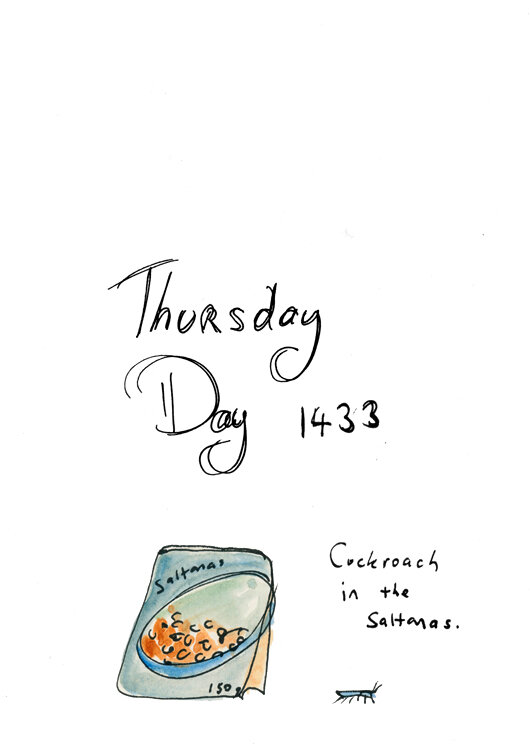 Thursday
Day 1433
Saltanas
150g
Cockroach
in the
Saltanas.